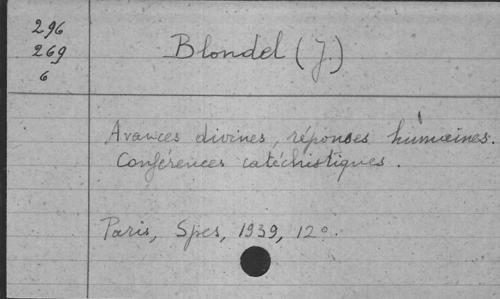 296
269
6
Blondel (J.)
Avances divines, réponses humaines.
Conférences catéchistiques.
Paris, Spes, 1939, 12°.